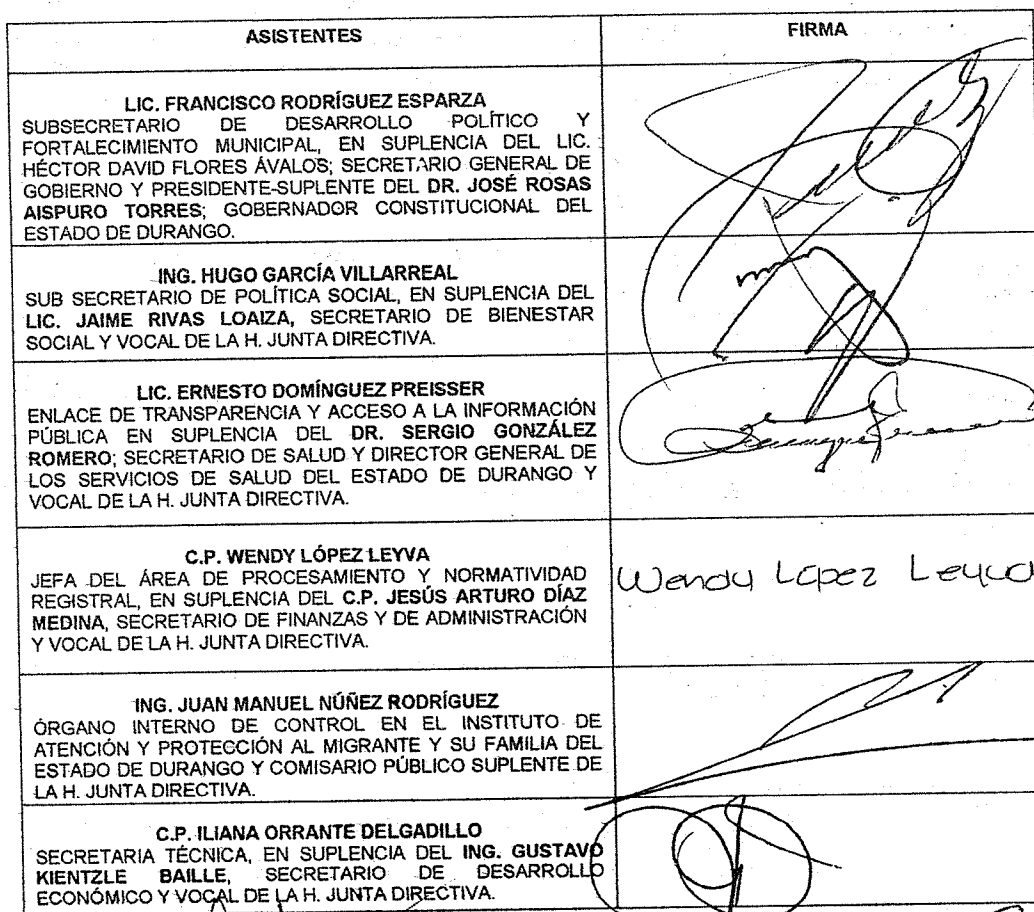 ASISTENTES
FIRMA
LIC. FRANCISCO RODRÍGUEZ ESPARZA
SUBSECRETARIO DE DESARROLLO POLÍTICO Y
FORTALECIMIENTO MUNICIPAL, EN SUPLENCIA DEL LIC.
HÉCTOR DAVID FLORES ÁVALOS; SECRETARIO GENERAL DE
GOBIERNO Y PRESIDENTE-SUPLENTE DEL DR. JOSÉ ROSAS
AISPURO TORRES; GOBERNADOR CONSTITUCIONAL DEL
ESTADO DE DURANGO.
ING. HUGO GARCÍA VILLARREAL
SUB SECRETARIO DE POLÍTICA SOCIAL, EN SUPLENCIA DEL
LIC. JAIME RIVAS LOAIZA, SECRETARIO DE BIENESTAR
SOCIAL Y VOCAL DE LA H. JUNTA DIRECTIVA.
LIC. ERNESTO DOMÍNGUEZ PREISSER
ENLACE DE TRANSPARENCIA Y ACCESO A LA INFORMACIÓN
PÚBLICA EN SUPLENCIA DEL DR. SERGIO GONZÁLEZ
ROMERO; SECRETARIO DE SALUD Y DIRECTOR GENERAL DE
LOS SERVICIOS DE SALUD DEL ESTADO DE DURANGO Y
VOCAL DE LA H. JUNTA DIRECTIVA.
C.P. WENDY LÓPEZ LEYVA
JEFA DEL ÁREA DE PROCESAMIENTO Y NORMATIVIDAD
REGISTRAL, EN SUPLENCIA DEL C.P. JESÚS ARTURO DÍAZ
MEDINA, SECRETARIO DE FINANZAS Y DE ADMINISTRACIÓN
Y VOCAL DE LA H. JUNTA DIRECTIVA.
Wendy López Leyva
ING. JUAN MANUEL NÚÑEZ RODRÍGUEZ
ÓRGANO INTERNO DE CONTROL EN EL INSTITUTO DE
ATENCIÓN Y PROTECCIÓN AL MIGRANTE Y SU FAMILIA DEL
ESTADO DE DURANGO Y COMISARIO PÚBLICO SUPLENTE DE
LA H. JUNTA DIRECTIVA.
C.P. ILIANA ORRANTE DELGADILLO
SECRETARIA TÉCNICA, EN SUPLENCIA DEL ING. GUSTAVO
KIENTZLE BAILLE, SECRETARIO DE DESARROLLO
ECONÓMICO Y VOCAL DE LA H. JUNTA DIRECTIVA.